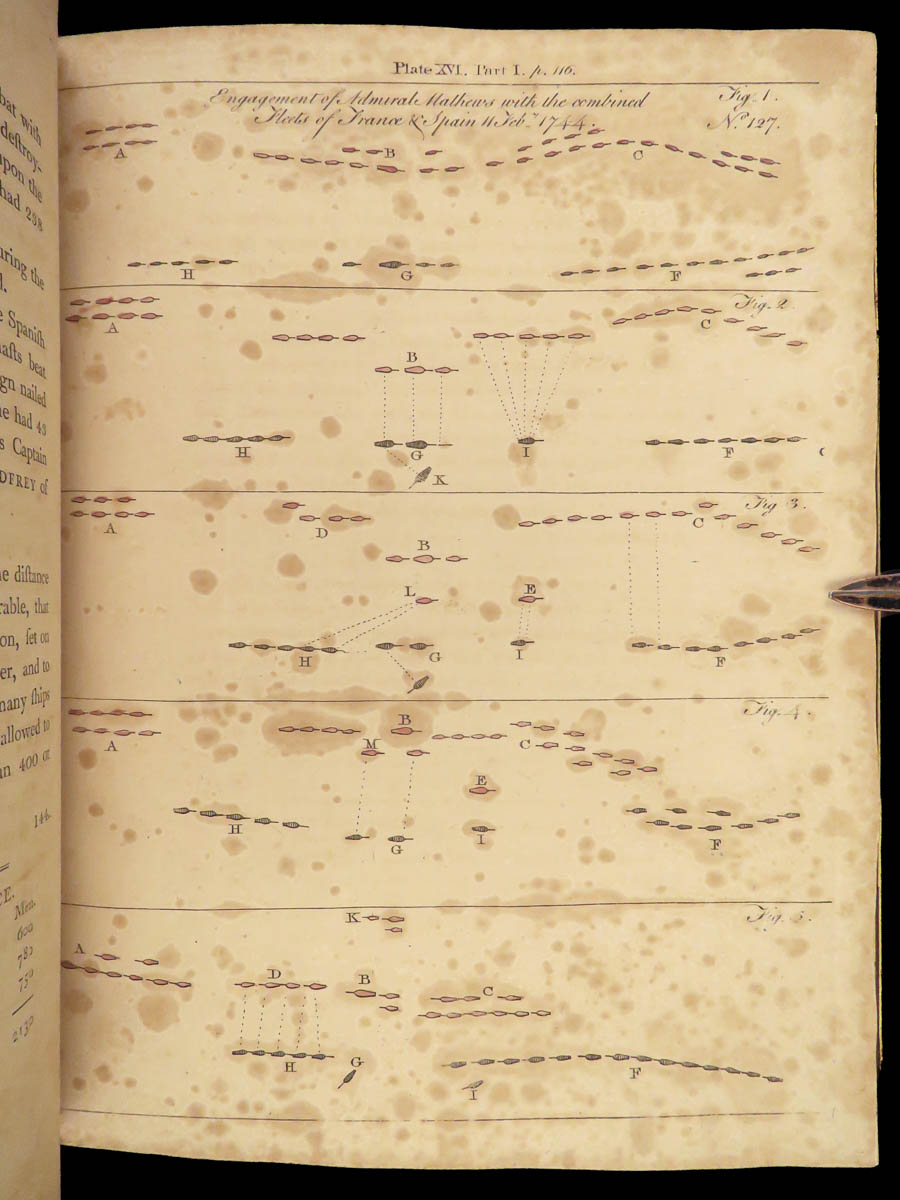 bat with
destroy-
upon the
had 238
uring the
d.
e Spanish
masts beat
gn nailed
he had 43
s Captain
DFREY of
he distance
rable, that
on, set on
er, and to
many ships
allowed to
an 400 or
144.
CE.
Men.
600
782
750
2132
Plate XVI. Part I. p. 116.
Engagement of Admiral Mathews with the combined
Fleets of France & Spain 11 Feb.ʸ 1744.
Fig. 1.
N.º 127.
A
B
C
H
G
F
Fig. 2
A
B
C
H
G
I
F
K
Fig 3.
A
D
B
C
L
E
H
G
I
F
Fig. 4.
A
B
M
C
E
H
G
I
F
Fig. 5.
K
A
D
B
C
H
G
I
F